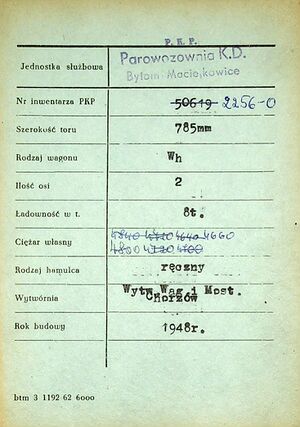 P. K. P.
Jednostka służbowa Parowozownia K.D.
Bytom Maciejkowice
Nr inwentarza PKP 50619 2256-0
Szerokość toru 785mm
Rodzaj wagonu Wh
Ilość osi 2
Ładowność w t. 8t.
Ciężar własny 4840 4720 4640 4660
4800 4720 4700
Rodzaj hamulca ręczny
Wytwórnia Wytw. Wag. i Most.
Chorzów
Rok budowy 1948r.
btm 3 1192 62 6000